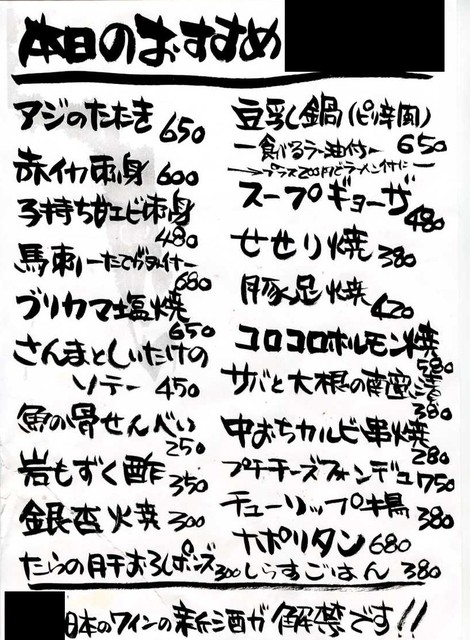 本日のおすすめ
アジのたたき 650
赤イカ刺身 600
子持ち甘エビ刺身 480
馬刺 ーたてがみ付ー 680
ブリカマ塩焼 650
さんまとしいたけの
ソテー 450
魚の骨せんべい 250
岩もずく酢 350
銀杏火焼 300
たらの肝おろしポンズ 300
豆乳鍋(ピリ辛風) 650
ー食べるラー油付ー
→プラス200円でラーメン付にー
スープギョーザ 480
せせり焼 380
豚足焼 420
コロコロホルモン焼 580
サバと大根の南蛮漬 380
中おちカルビ串焼 280
プチチーズフォンデュ 750
チューリップ揚 380
ナポリタン 680
しらすごはん 380
日本のワインの新酒が解禁です!!